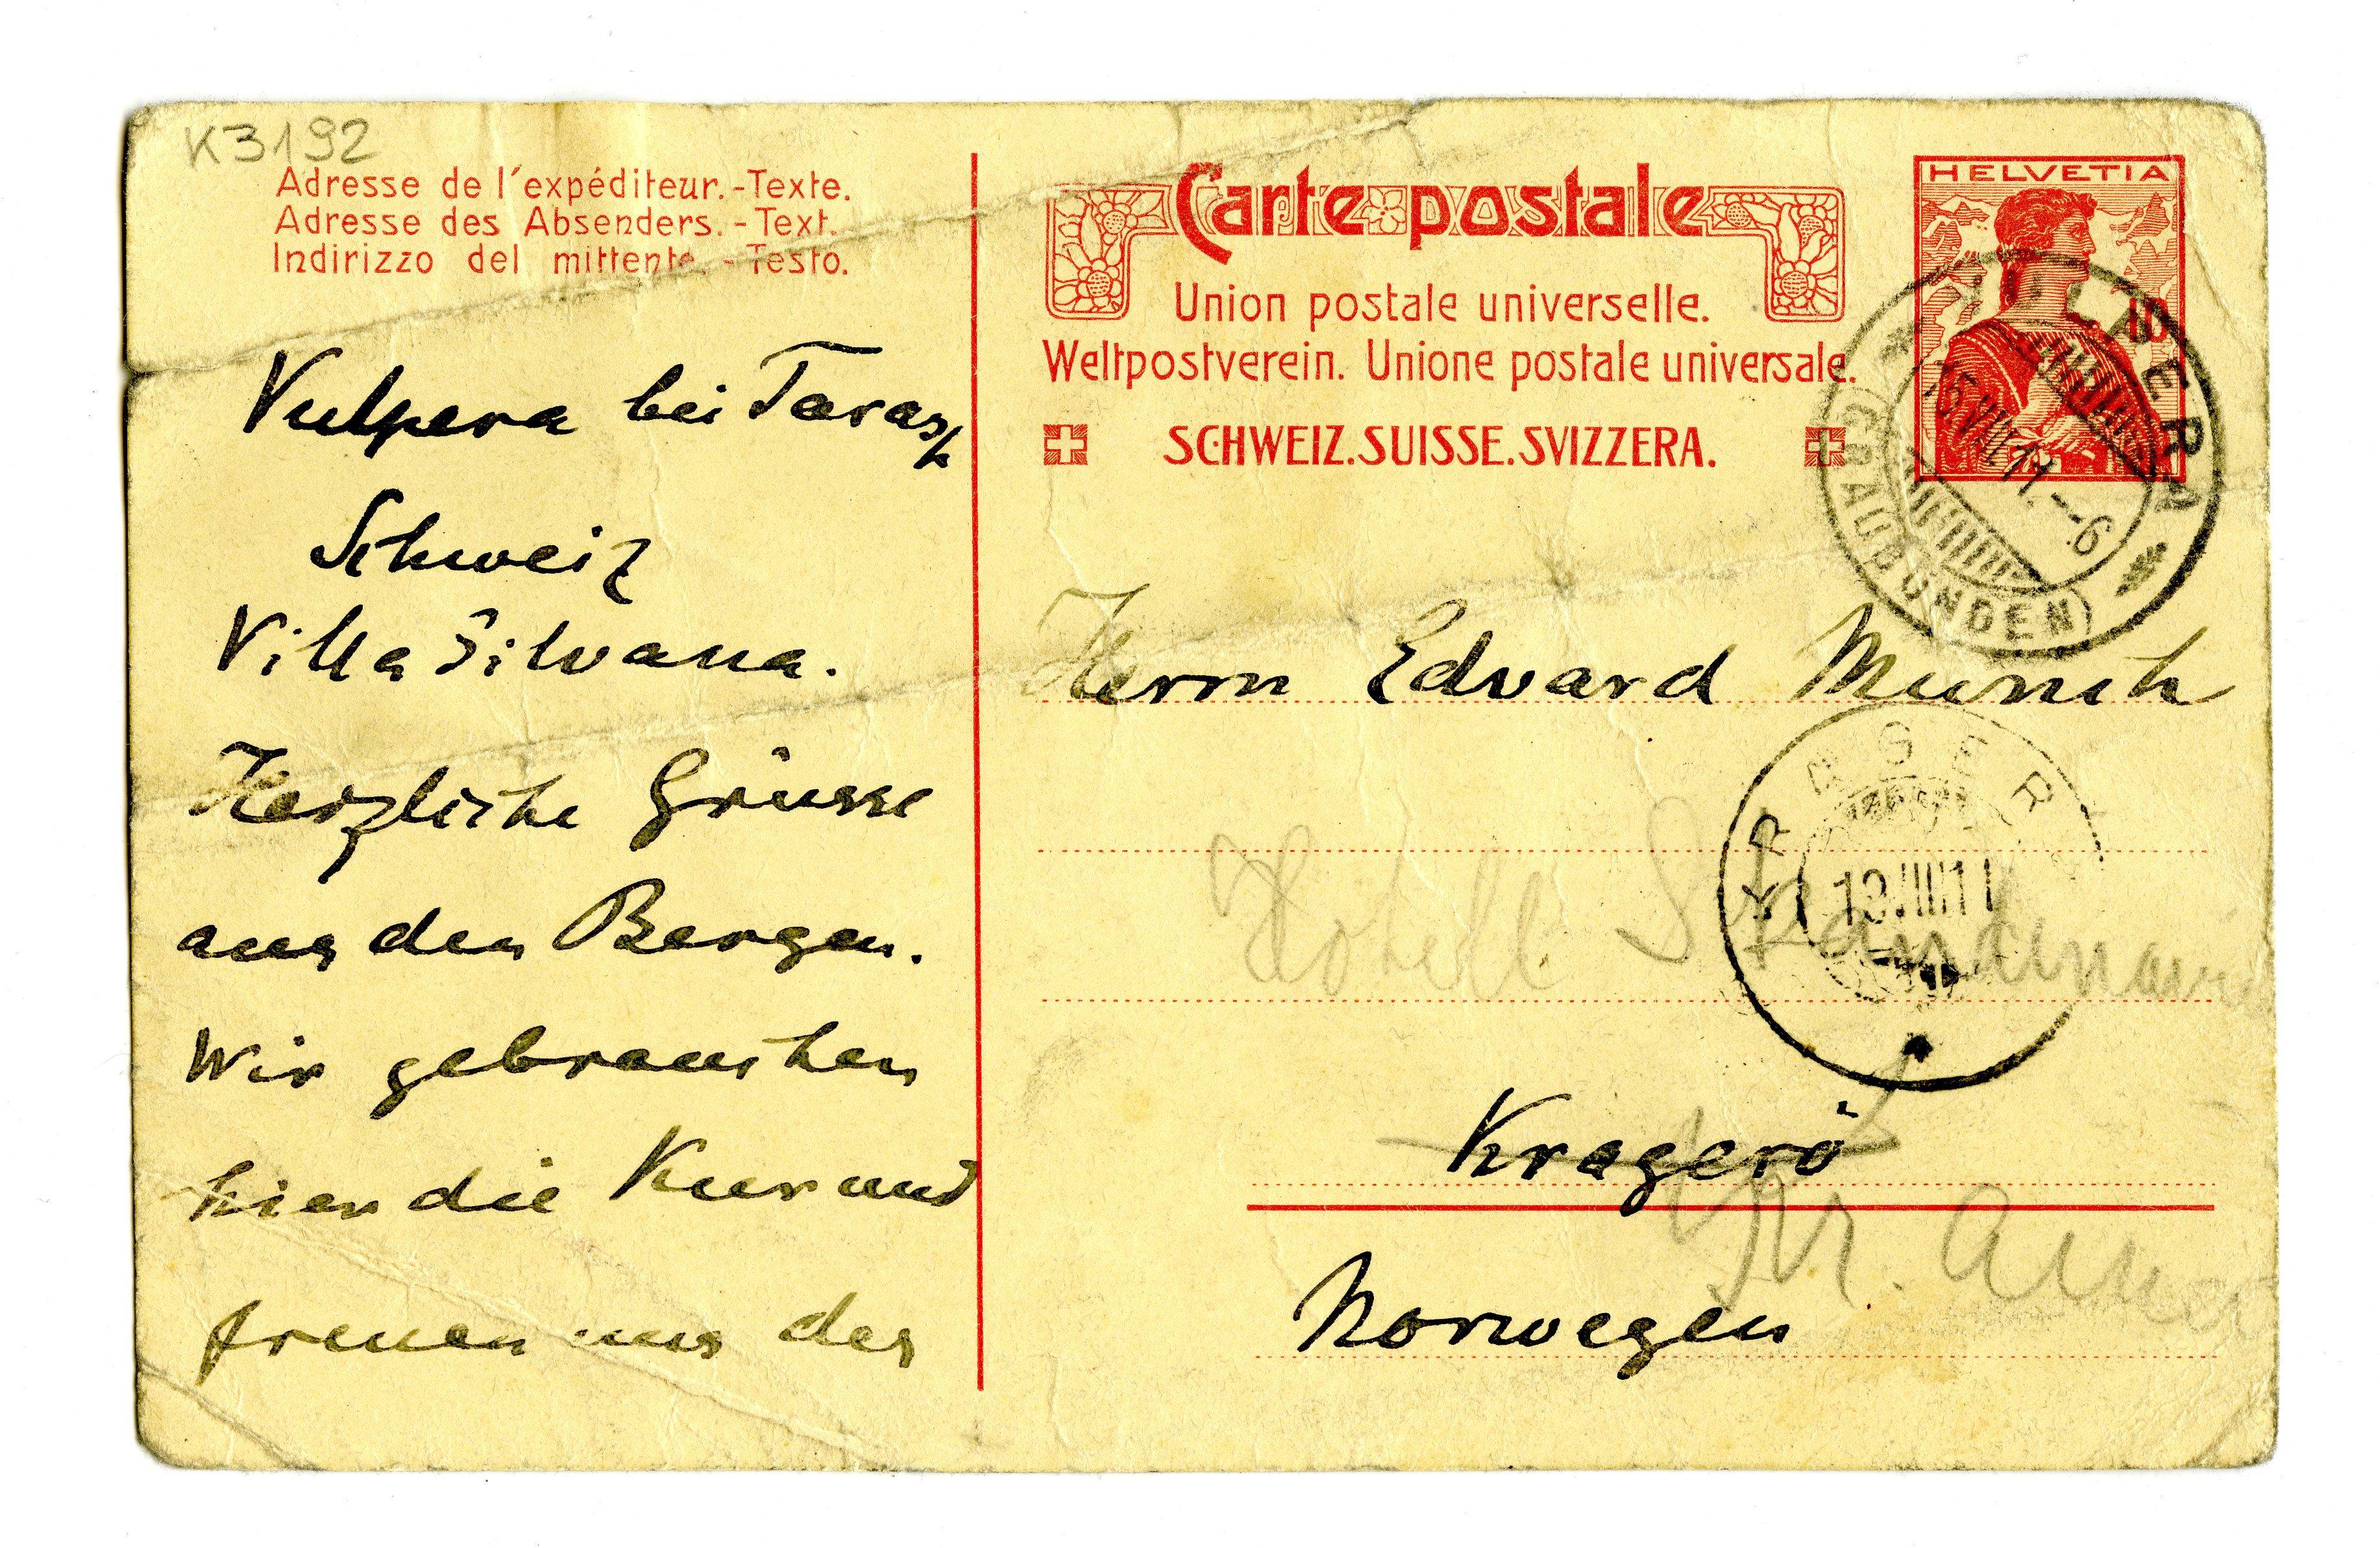 K3192
Adresse de l'expéditeur.-Texte.
Adresse des Absenders.-Text.
Indirizzo del mittente.-Testo.
Vulpera bei Tarasp
Schweiz
Villa Silvana.
Herzliche Grüsse
aus den Bergen.
Wir gebrauchen
hier die Kur und
freuen uns des
Carte postale
Union postale universelle.
Weltpostverein. Unione postale universale.
SCHWEIZ.SUISSE.SVIZZERA.
HELVETIA
10
VULPERA
15.VIII.11.--6
(GRAUBÜNDEN)
Herrn Edvard Munch
KRAGER
19 VIII 11
Hotell
Kragerö
Norwegen